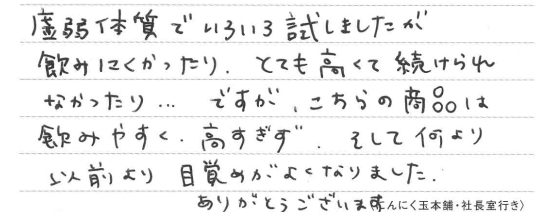 虚弱体質でいろいろ試しましたが
飲みにくかったり、とても高くて続けられ
なかったり… ですが、こちらの商品は
飲みやすく、高すぎず、そして何より
以前より目覚めがよくなりました。
ありがとうございます
んにく玉本舗・社長室行き〉